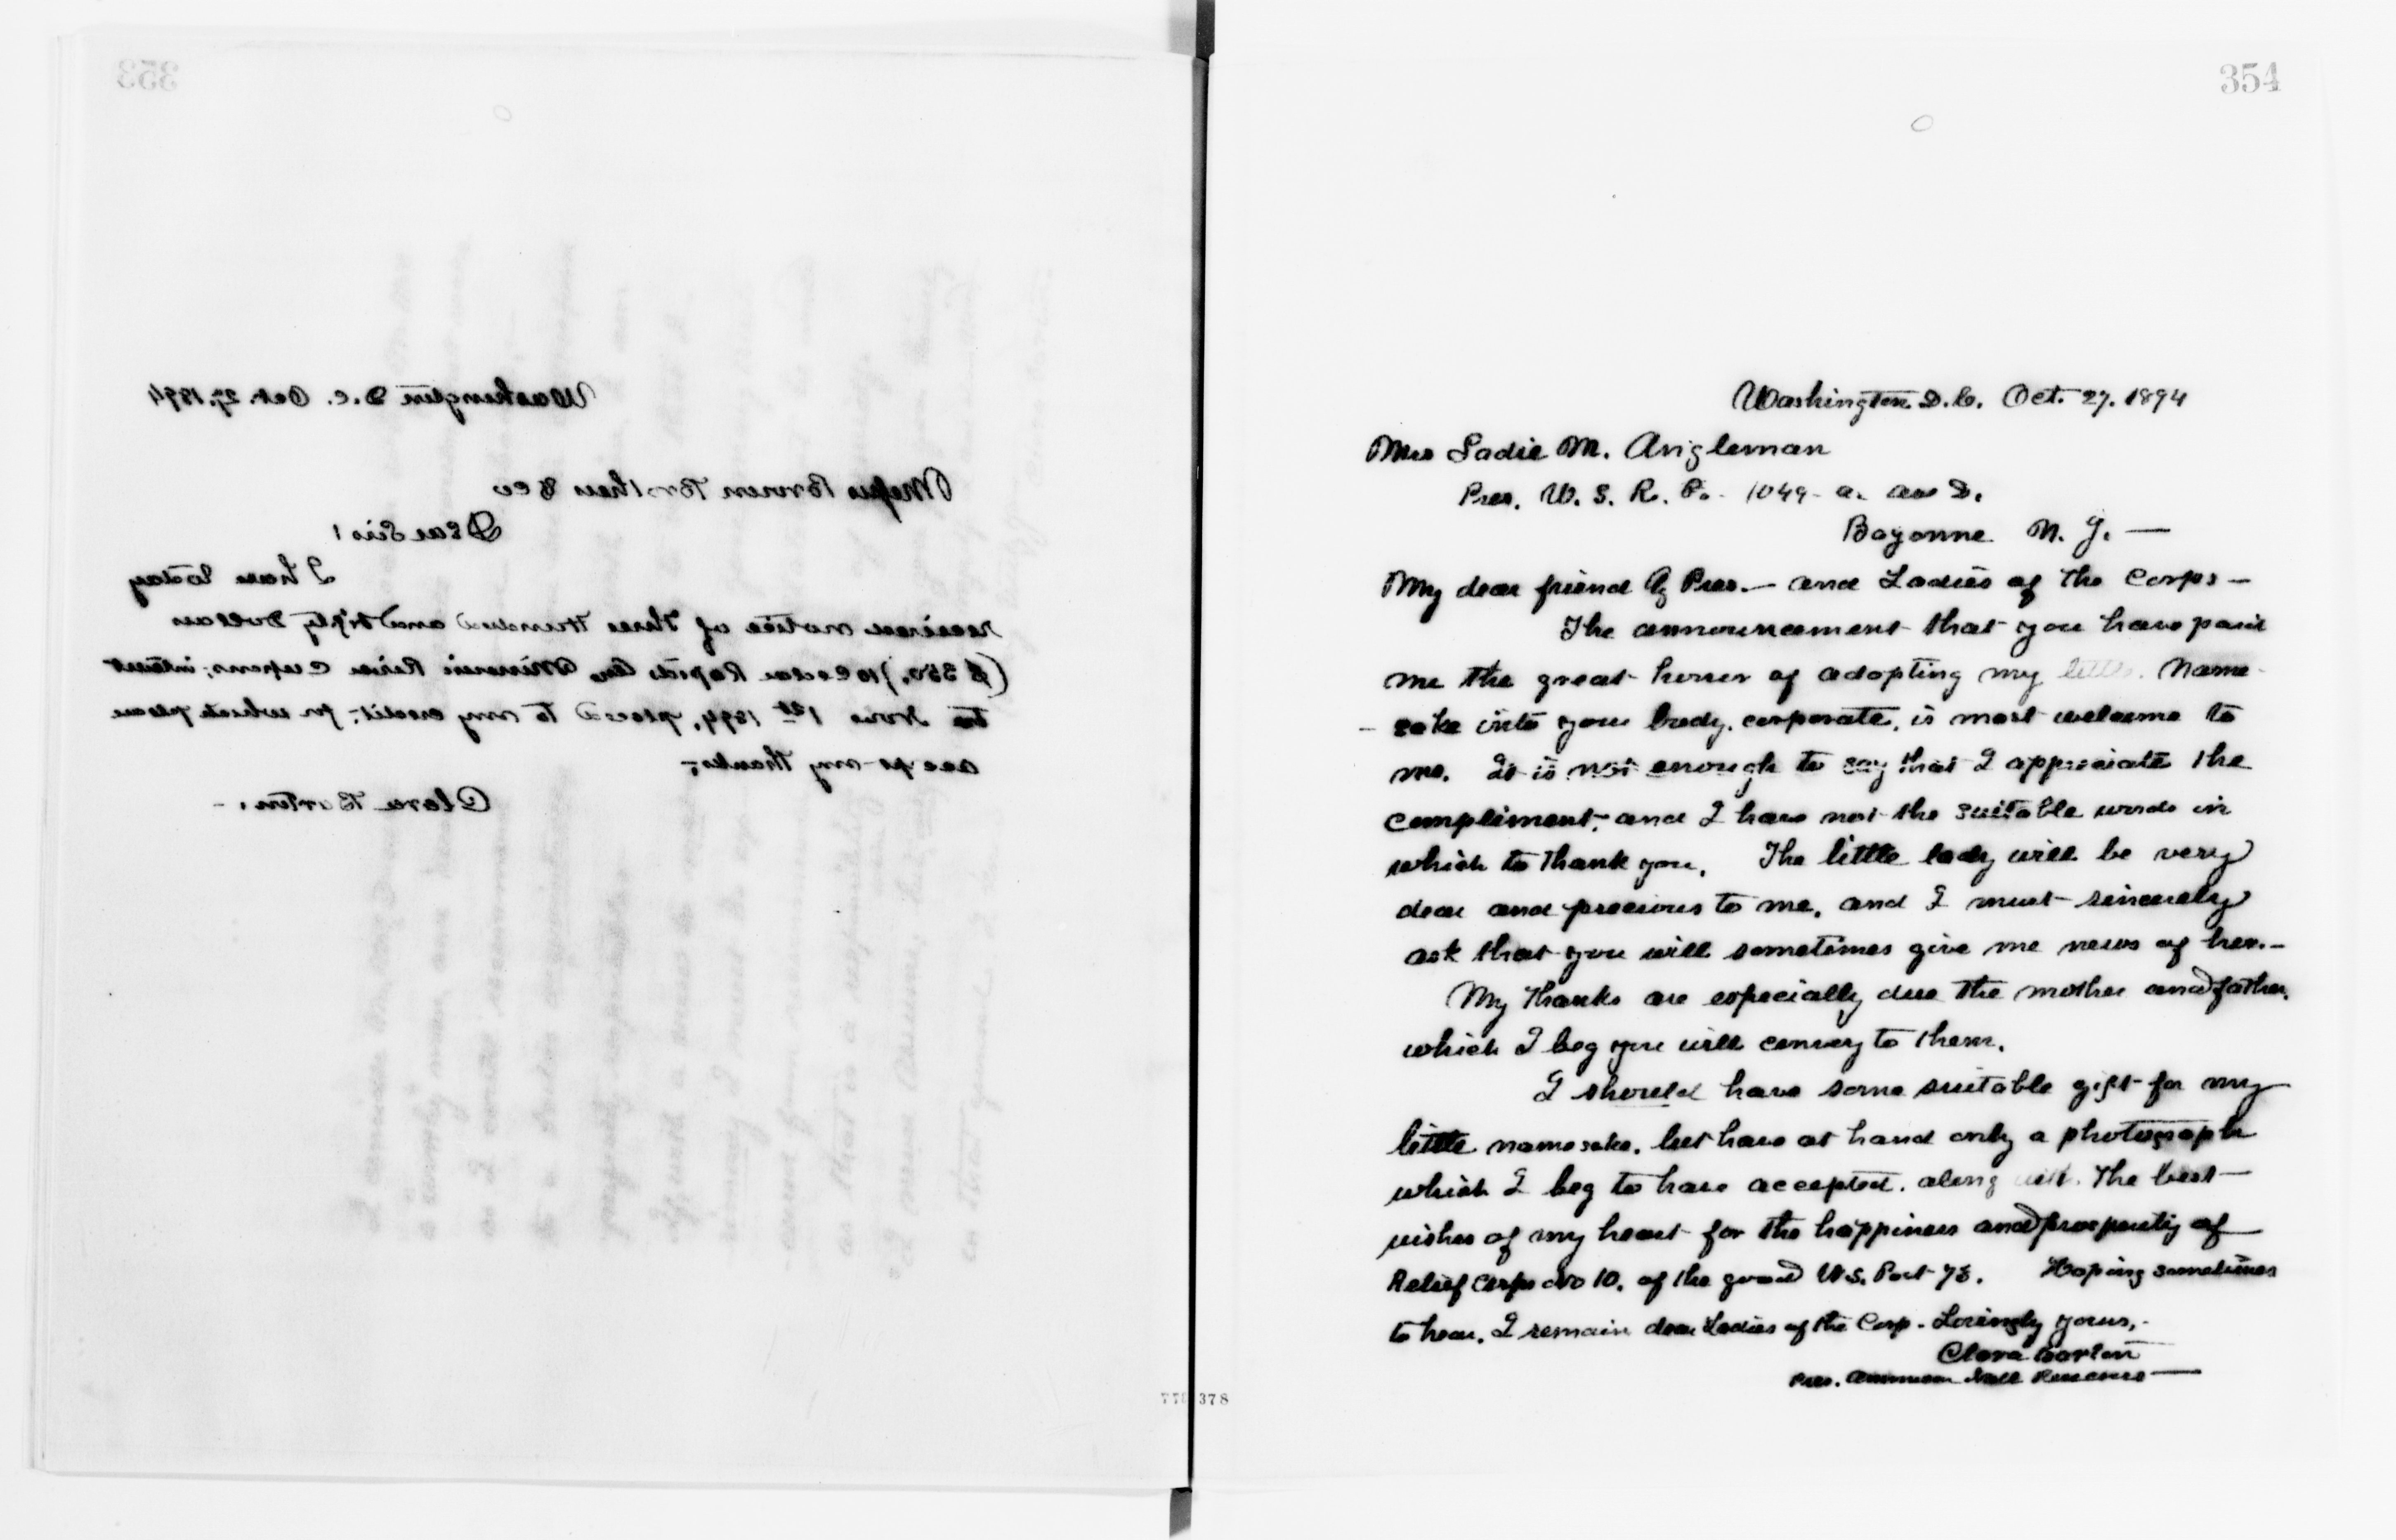 353
Washington D.C. Oct. 27. 1894
Messrs Brown Brothers & Co
Dear Sirs!
I have today
received notice of three Hundred and fifty Dollars
($350.) 10 Cedar Rapids Missouri River Cupons; interest
to Nov 1st 1894, placed to my credit; for which please
accept my thanks,
Clara Barton. -
354
Washington D.C. Oct. 27. 1894
Mrs Sadie M. Angleman
Pres. W. S. R. 1049- D.
Bayonne N. J. —
My dear friend Pres. — and Ladies of the Corps —
The announcement that you have paid
me the great honor of adopting my little name
- sake into your body, corporate, is most welcome to
me. It is not enough to say that I appreciate the
compliment; and I have not the suitable words in
which to thank you. The little lady will be very
dear and precious to me, and I most sincerely
ask that you will sometimes give me news of her. -
My thanks are especially due the mother and father,
which I beg you will convey to them.
I should have some suitable gift for my
little namesake, but have at hand only a photograph
which I beg to have accepted, along with the best
wishes of my heart for the happiness and prosperity of
Relief Corps No 10. of the grand W.S. Post 73. Hoping sometimes
to hear, I remain dear Ladies of the Corp - Lovingly yours, -
Clara Barton
Pres. American Natl Red Cross —
378